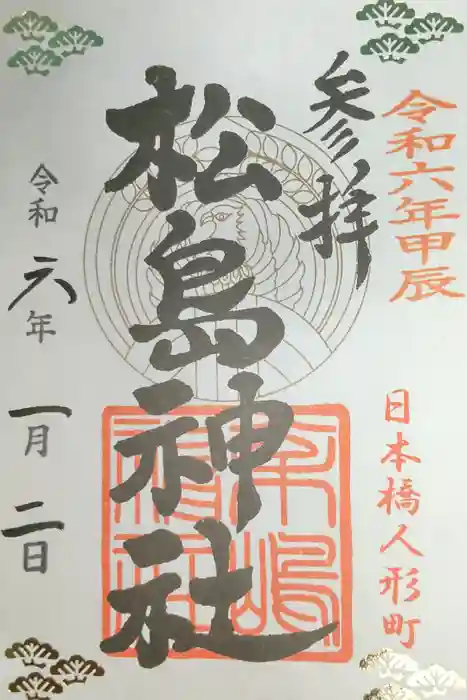 令和六年甲辰
日本橋人形町
参拝
松島神社
松嶋神社
令和六年
一月二日